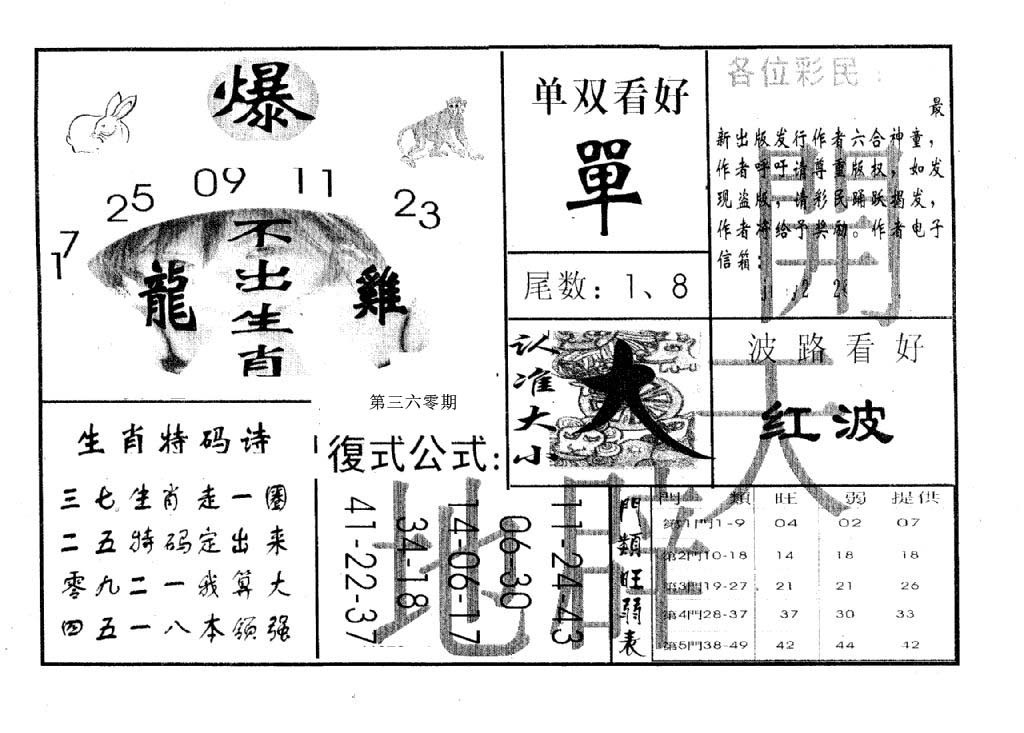 爆
25 09 11 23
17
不出生肖
龍
雞
单双看好
單
尾数：1、8
各位彩民：
最
新出版发行作者六合神童，
作者呼吁请尊重版权，如发
现盗版，请彩民踊跃揭发，
作者将给予奖励。作者电子
信箱：
开
认准大小
大
波路看好
红波
天
第三六零期
生肖特码诗
三七生肖走一圈
二五特码定出来
零九二一我算大
四五一八本领强
復式公式：
41-22-37
34-18
14-06-17
06-30
11-24-43
地
門類旺弱表
門 類 旺 弱 提供
第1門1-9 04 02 07
第2門10-18 14 18 18
第3門19-27 21 21 26
第4門28-37 37 30 33
第5門38-49 42 44 42